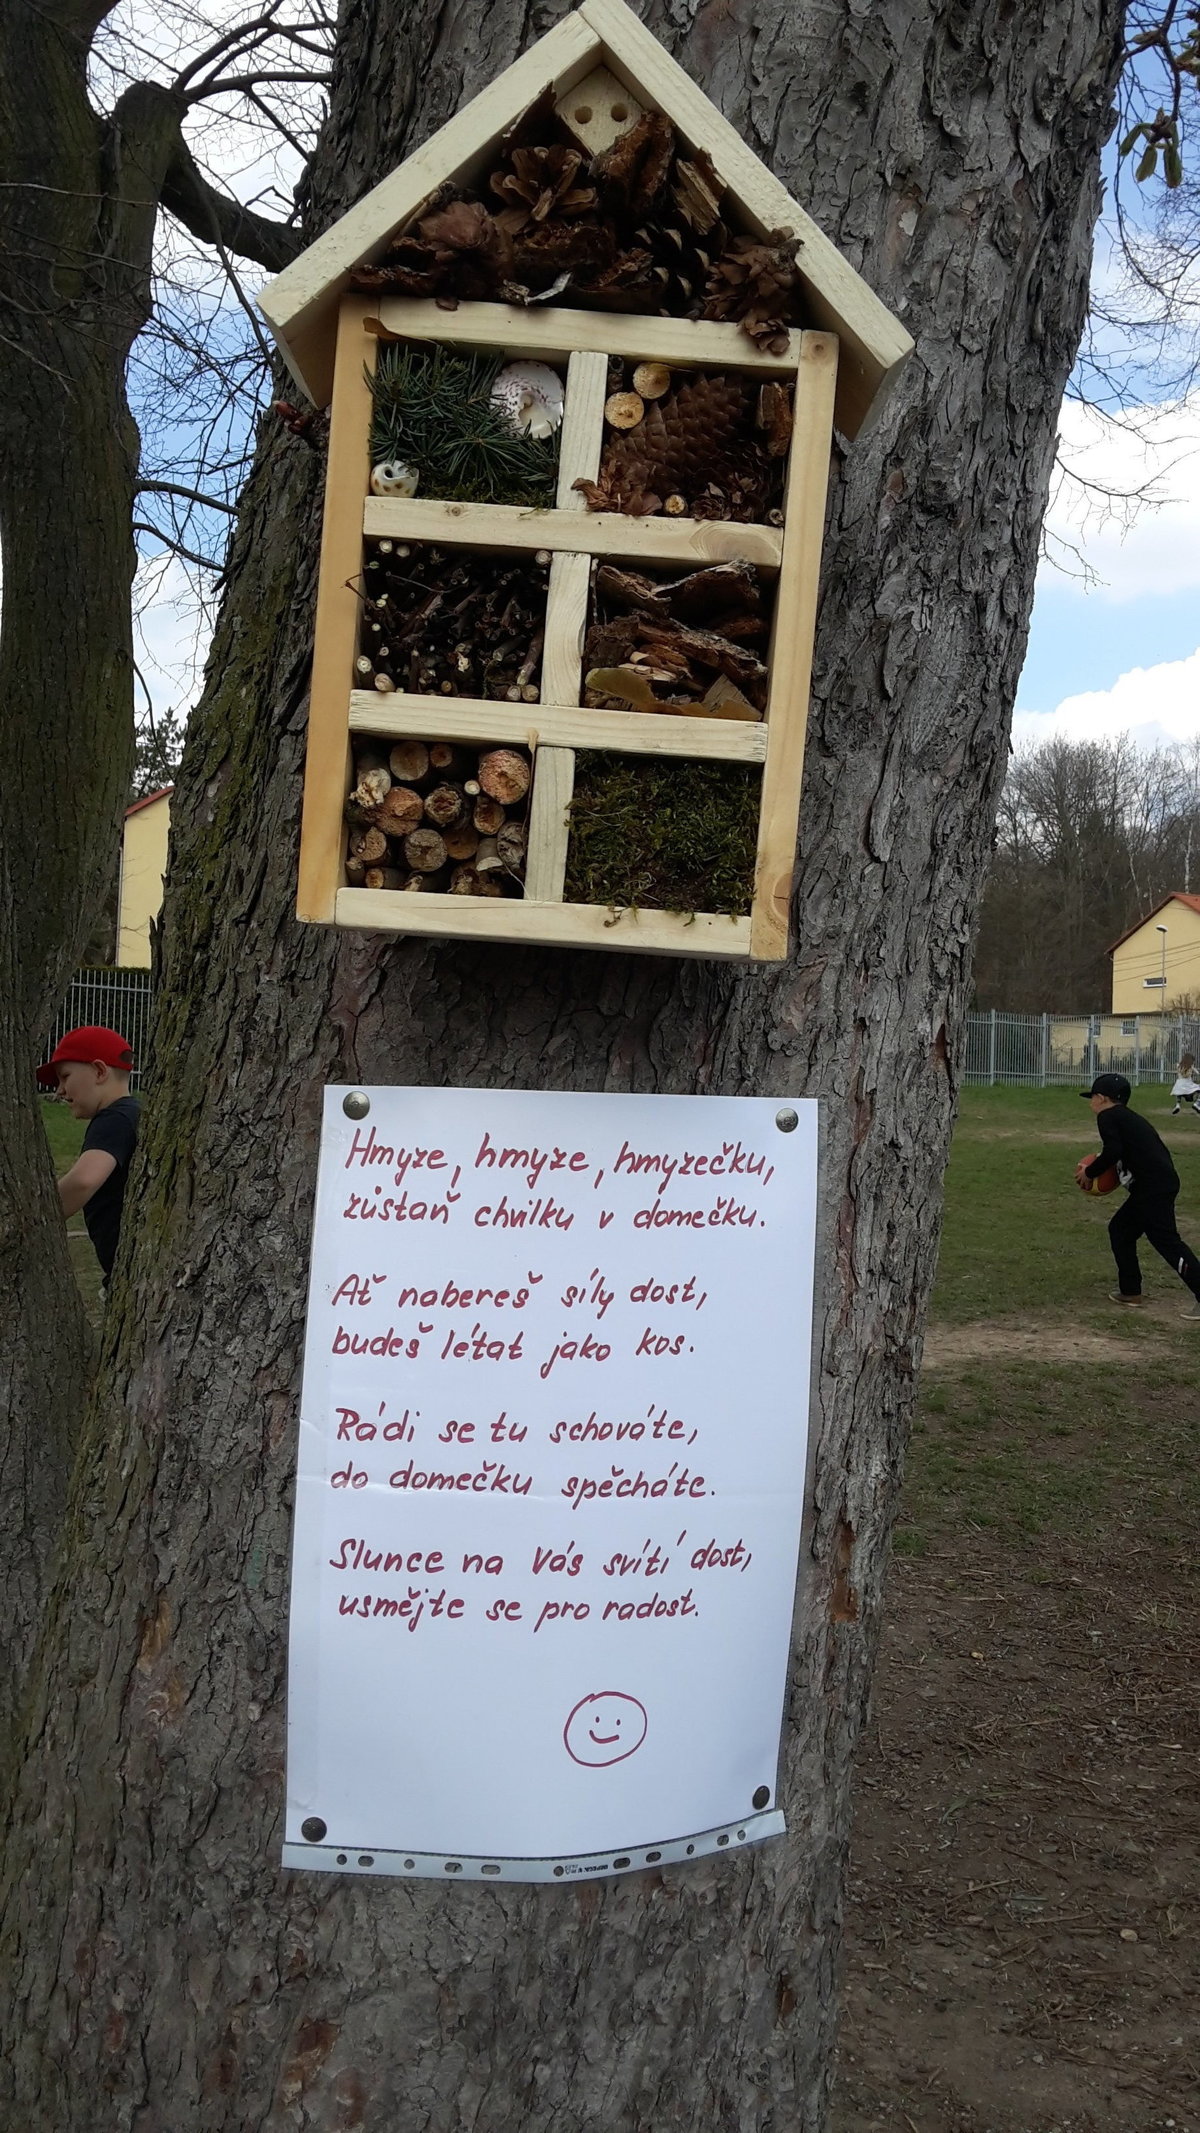 Hmyze, hmyze, hmyzečku,
zůstaň chvilku v domečku.
Ať nabereš síly dost,
budeš létat jako kos.
Rádi se tu schováte,
do domečku spěcháte.
Slunce na Vás svítí dost,
usmějte se pro radost.